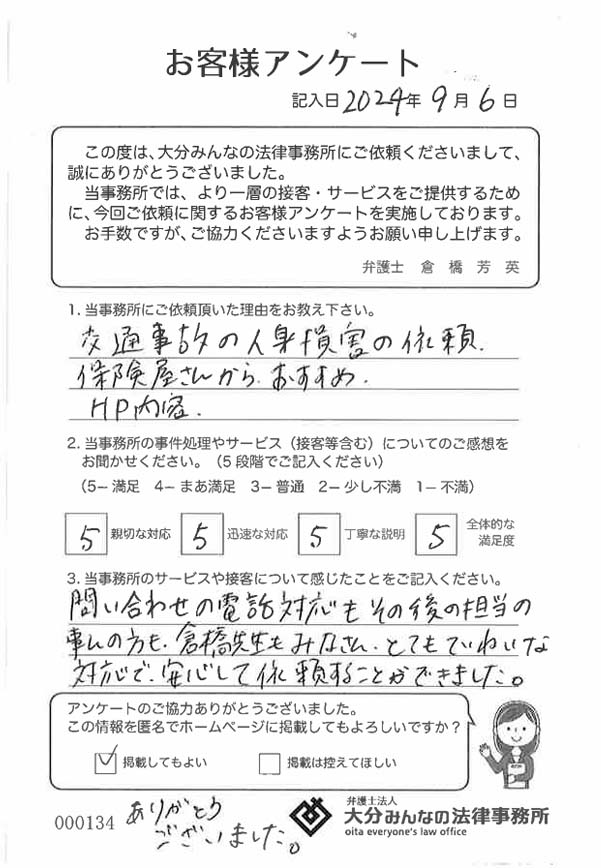 お客様アンケート
記入日2024年9月6日
この度は、大分みんなの法律事務所にご依頼くださいまして、
誠にありがとうございました。
当事務所では、より一層の接客・サービスをご提供するため
に、今回ご依頼に関するお客様アンケートを実施しております。
お手数ですが、ご協力くださいますようお願い申し上げます。
弁護士 倉橋芳英
1. 当事務所にご依頼頂いた理由をお教え下さい。
交通事故の人身損害の依頼.
保険屋さんから.おすすめ.
HP内容.
2. 当事務所の事件処理やサービス（接客等含む）についてのご感想を
お聞かせください。（5段階でご記入ください）
（5－満足 4－まあ満足 3－普通 2－少し不満 1－不満）
5 親切な対応 5 迅速な対応 5 丁寧な説明 5 全体的な
満足度
3. 当事務所のサービスや接客について感じたことをご記入ください。
問い合わせの電話対応もその後の担当の
事ムの方も.倉橋先生もみなさん.とてもていねいな
対応で.安心して依頼することができました。
アンケートのご協力ありがとうございました。
この情報を匿名でホームページに掲載してもよろしいですか？
掲載してもよい 掲載は控えてほしい
000134
ありがとう
ございました。
弁護士法人
大分みんなの法律事務所
oita everyone's law office